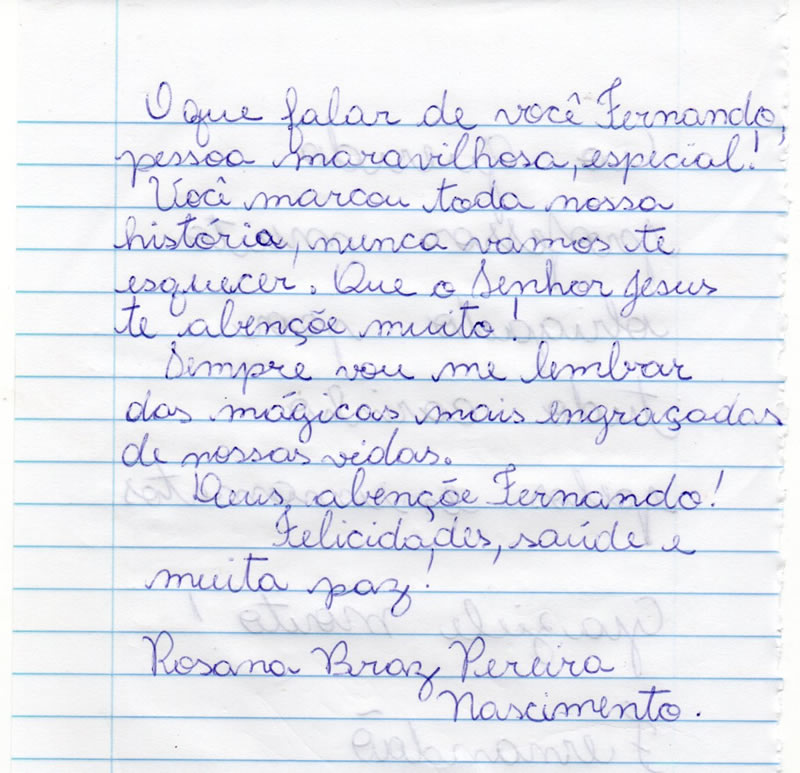 O que falar de você Fernando,
pessoa maravilhosa, especial!
Você marcou toda nossa
história, nunca vamos te
esquecer. Que o Senhor Jesus
te abençõe muito!
Sempre vou me lembrar
das mágicas mais engraçadas
de nossas vidas.
Deus, abençõe Fernando!
Felicidades, saúde e
muita paz!
Rosana Braz Pereira
Nascimento.